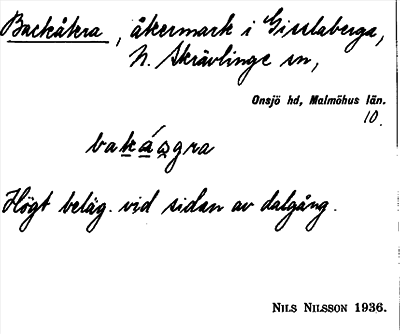 Backåkra, åkermark i Gisslaberga,
N. Skrävlinge sn,
Onsjö hd, Malmöhus län.
10.
bakágra
Högt beläg. vid sidan av dalgång.
Nils Nilsson 1936.